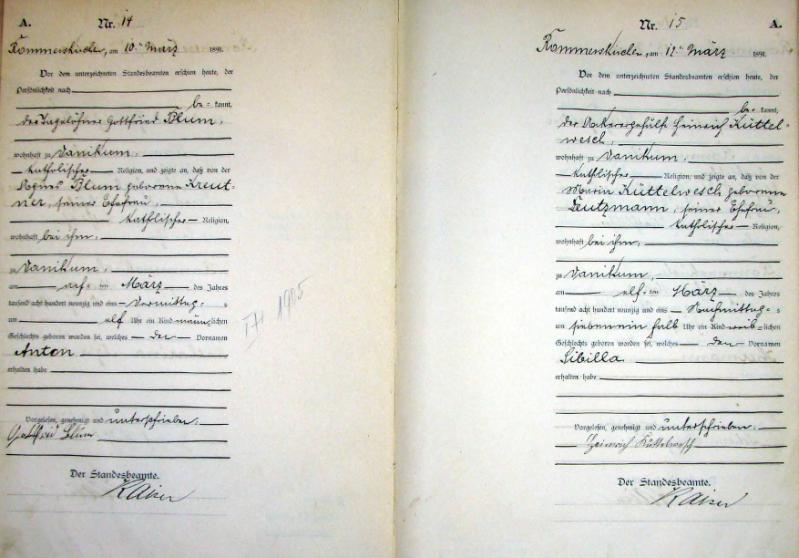 A. Nr. 14
Rommerskirchen, am 10ten März 1891.
Vor dem unterzeichneten Standesbeamten erschien heute, der
Persönlichkeit nach
be= kannt,
der Tagelöhner Gottfried Blum,
wohnhaft zu Vanikum,
katholischer Religion, und zeigte an, daß von der
Agnes Blum geborene Kreut-
ner, seiner Ehefrau,
katholischer Religion,
wohnhaft bei ihm,
zu Vanikum,
am im März des Jahres
tausend acht hundert neunzig und eins Vormittag- s
um elf Uhr ein Kind männlichen
Geschlechts geboren worden sei, welches den Vornamen
Anton
erhalten habe
Vorgelesen, genehmigt und unterschrieben.
Gottfried Blum
Der Standesbeamte.
Kaiser
1905
Nr. 15 A.
Rommerskirchen, am 12ten März 1891.
Vor dem unterzeichneten Standesbeamten erschien heute, der
Persönlichkeit nach
be= kannt,
der Ackergehülfe Heinrich Küttel-
wesch,
wohnhaft zu Vanikum,
katholischer Religion, und zeigte an, daß von der
Maria Küttelwesch geborene
Deutzmann, seiner Ehefrau,
katholischer Religion,
wohnhaft bei ihm,
zu Vanikum,
am elften März des Jahres
tausend acht hundert neunzig und eins Nachmittag- s
um siebenein halb Uhr ein Kind weiblichen
Geschlechts geboren worden sei, welches den Vornamen
Sibilla
erhalten habe
Vorgelesen, genehmigt und unterschrieben.
Heinrich Küttelwesch
Der Standesbeamte.
Kaiser